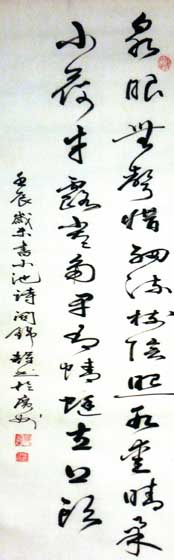 泉眼無聲惜細流樹陰照水愛晴柔
小荷才露尖尖角早有蜻蜓立上頭
壬辰歲末書小池詩 錦 於廣州